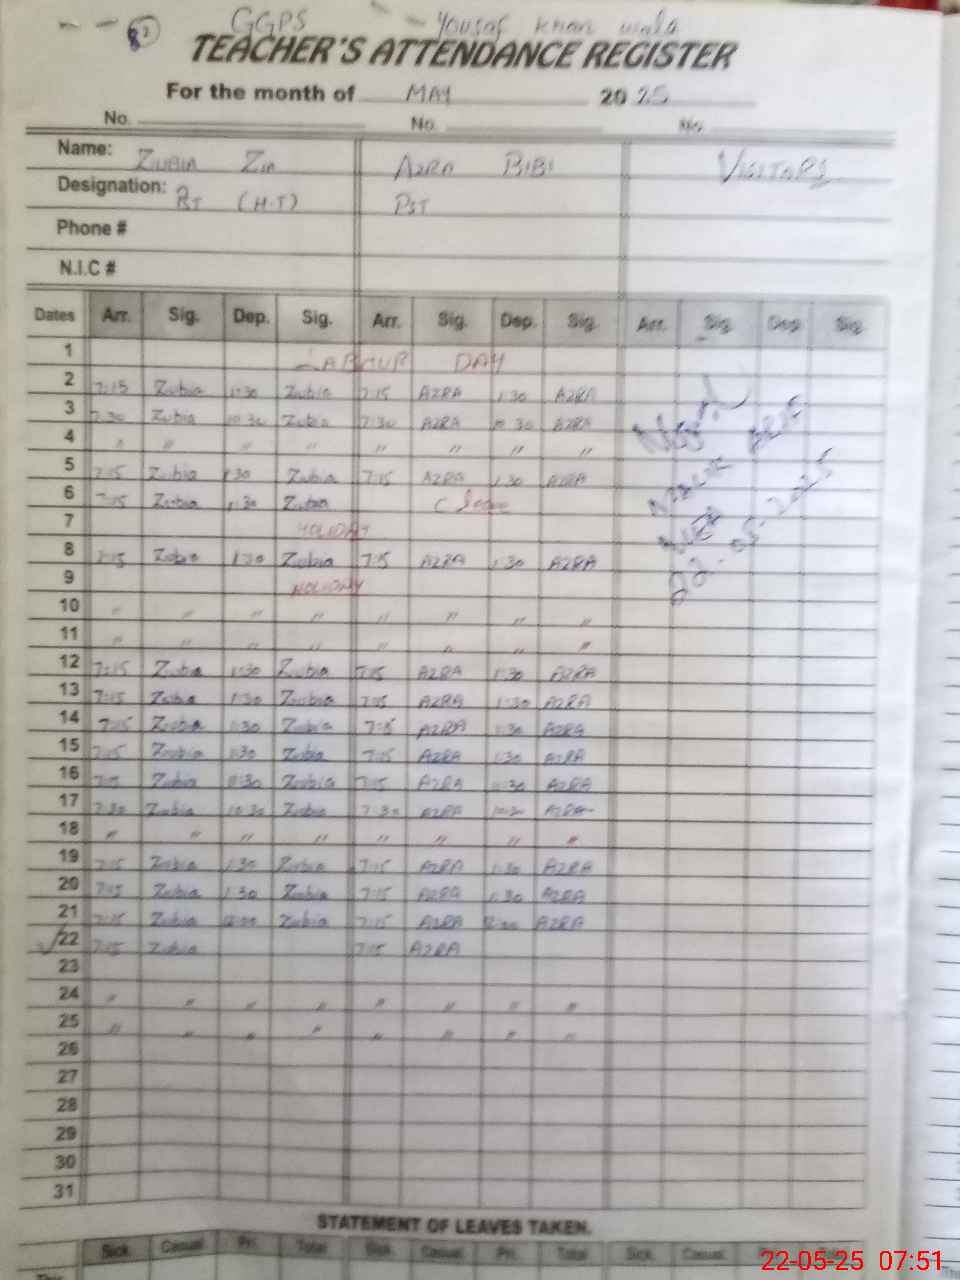 82 GGPS Yousaf Khan wala
TEACHER'S ATTENDANCE REGISTER
For the month of MAY 2025
No. No. No.
Name: Zubia Zia AZRA BIBI VISITORS
Designation: PST (H.T) PST
Phone #
N.I.C #
Dates Arr. Sig. Dep. Sig. Arr. Sig. Dep. Sig. Arr. Sig. Dep. Sig.
1 LABOUR DAY
2 7:15 Zubia 1:30 Zubia 7:15 AZRA 1:30 AZRA
3 7:30 Zubia 10:30 Zubia 7:30 AZRA 10:30 AZRA
4 " " " " " " " "
5 7:15 Zubia 1:30 Zubia 7:15 AZRA 1:30 AZRA
6 7:15 Zubia 1:30 Zubia C leave
7 HOLIDAY
8 7:15 Zubia 1:30 Zubia 7:15 AZRA 1:30 AZRA
9 HOLIDAY
10 " " " " " " " "
11 " " " " " " " "
12 7:15 Zubia 1:30 Zubia 7:15 AZRA 1:30 AZRA
13 7:15 Zubia 1:30 Zubia 7:15 AZRA 1:30 AZRA
14 7:15 Zubia 1:30 Zubia 7:15 AZRA 1:30 AZRA
15 7:15 Zubia 1:30 Zubia 7:15 AZRA 1:30 AZRA
16 7:15 Zubia 11:30 Zubia 7:15 AZRA 11:30 AZRA
17 7:30 Zubia 10:30 Zubia 7:30 AZRA 10:30 AZRA
18 " " " " " " " "
19 7:15 Zubia 1:30 Zubia 7:15 AZRA 1:30 AZRA
20 7:15 Zubia 1:30 Zubia 7:15 AZRA 1:30 AZRA
21 7:15 Zubia 12:00 Zubia 7:15 AZRA 12:00 AZRA
22 7:15 Zubia 7:15 AZRA
23
24 " " " " " " " "
25 " " " " " " " "
26
27
28
29
30
31
22-05-2025
STATEMENT OF LEAVES TAKEN.
Sick. Casual Pri. Total Sick. Casual Pri. Total Sick. Casual
22-05-25 07:51